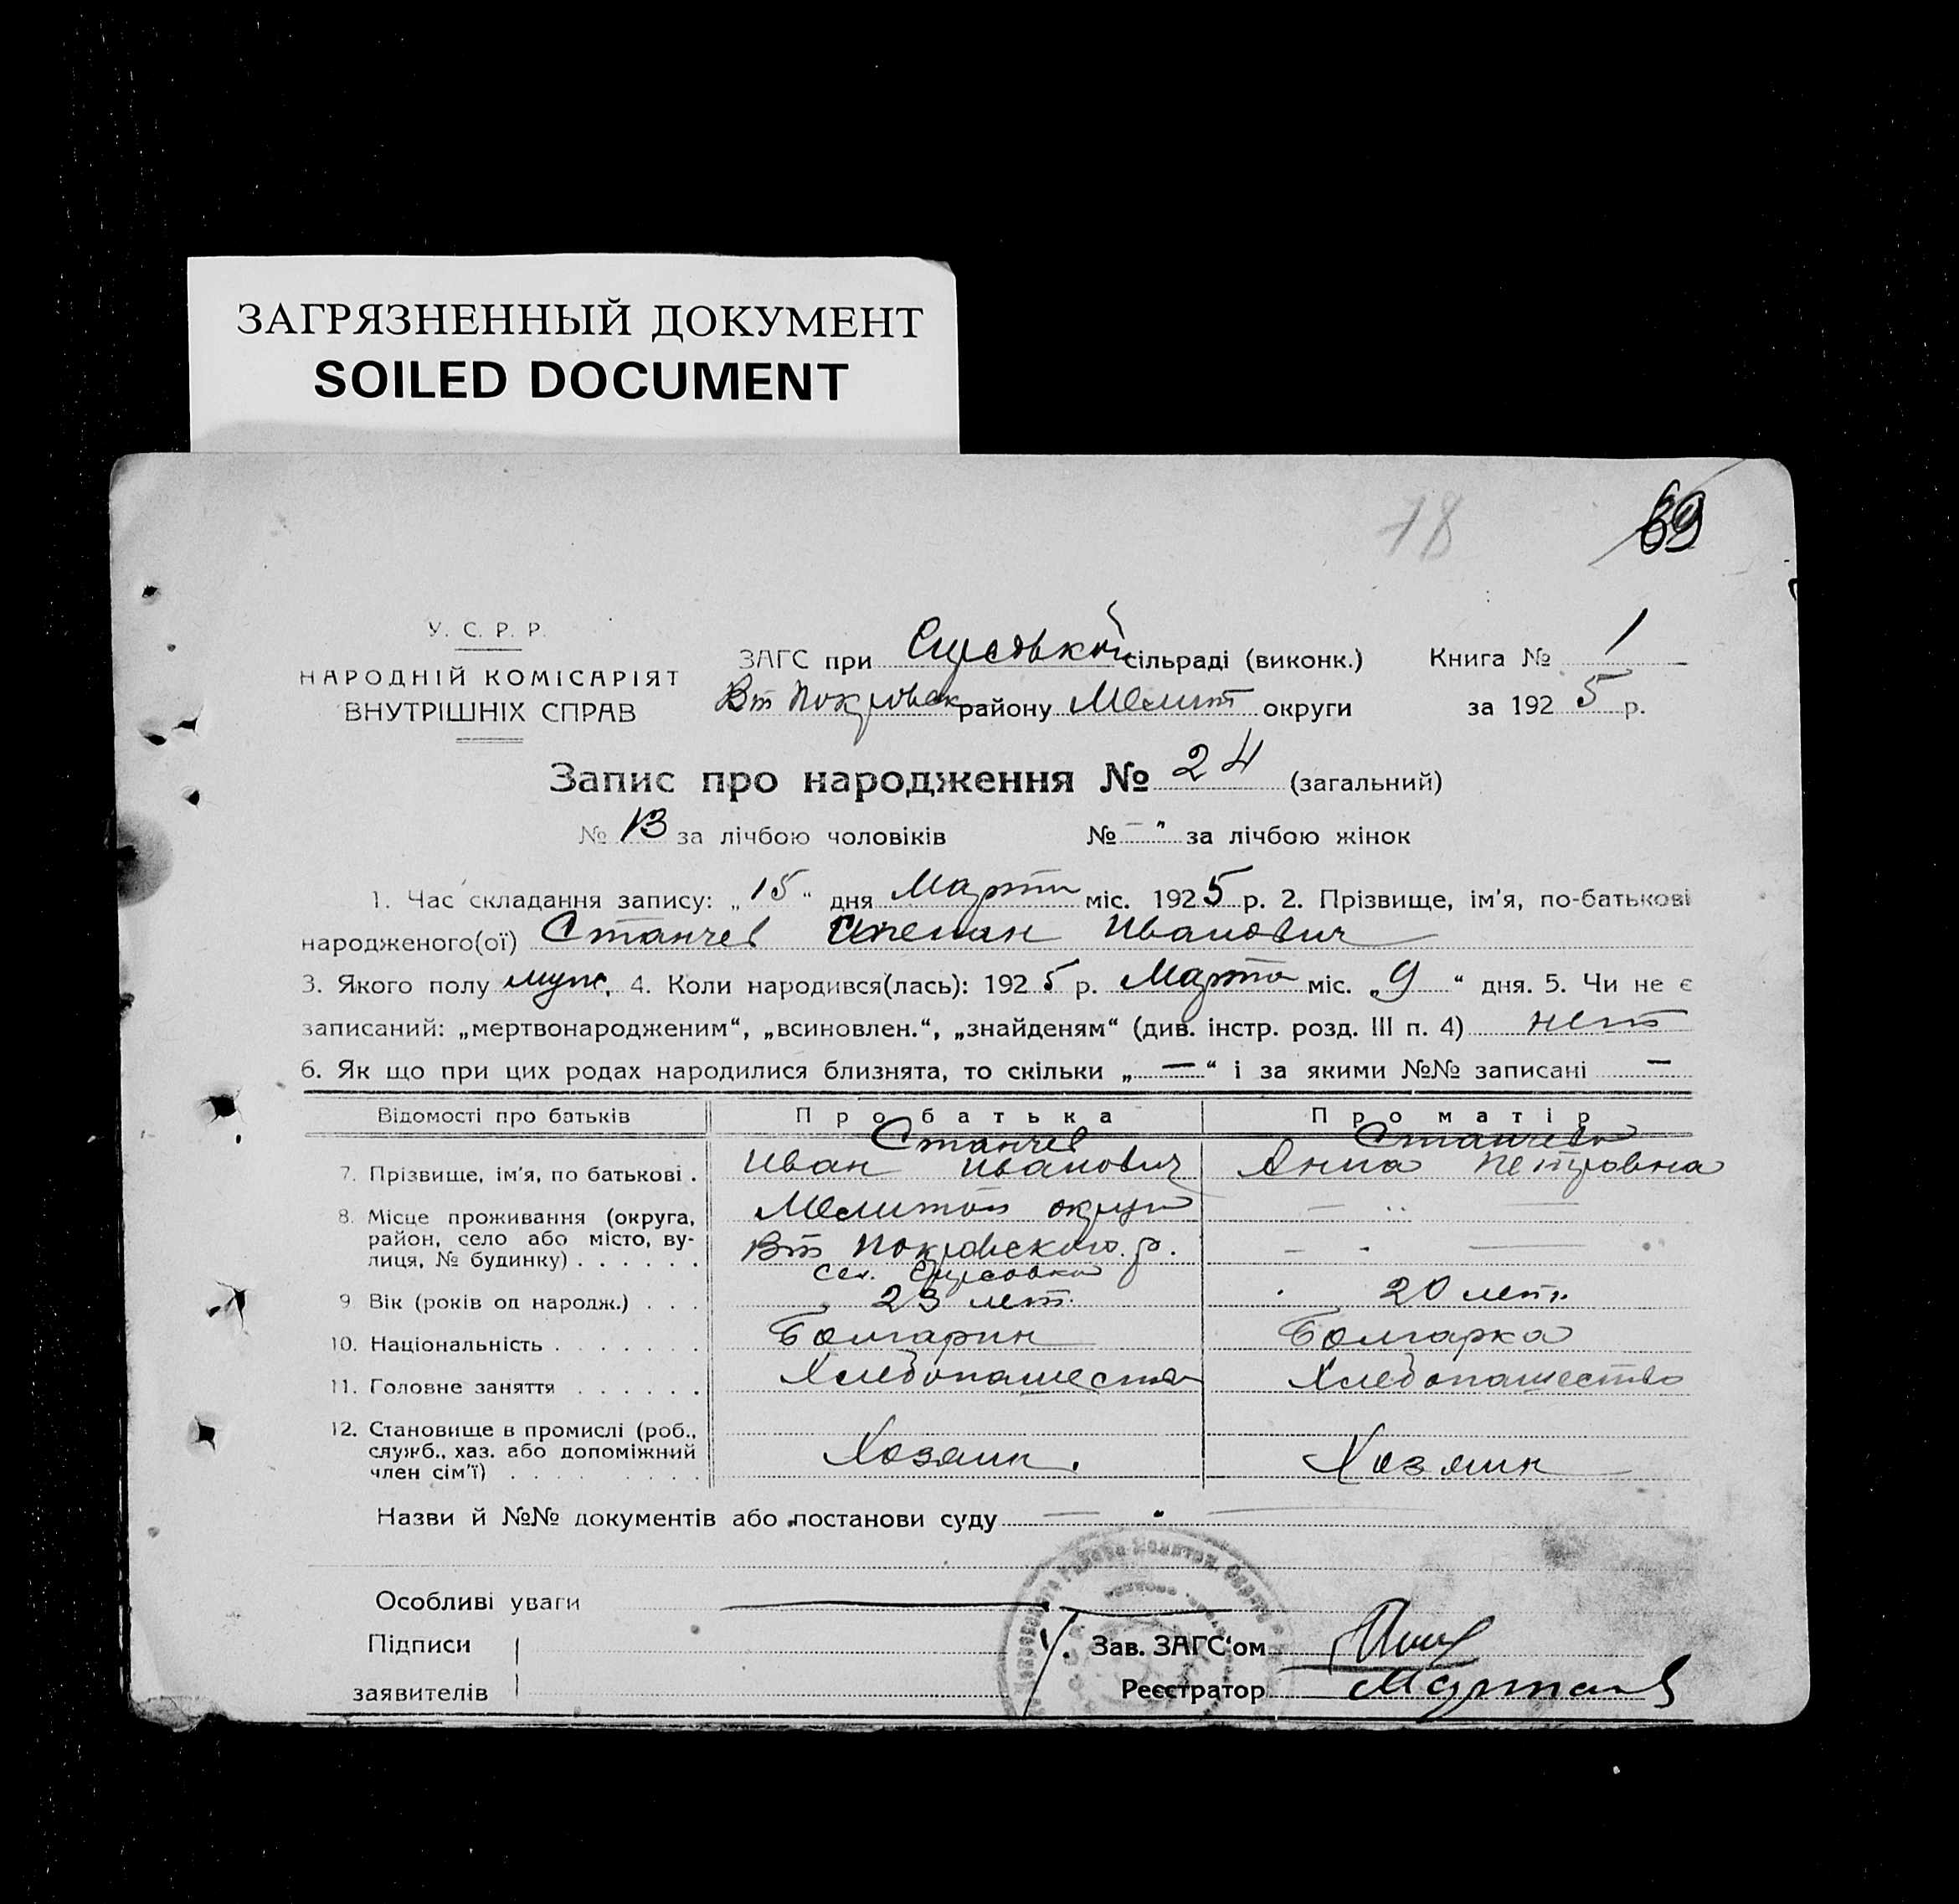 ЗАГРЯЗНЕННЫЙ ДОКУМЕНТ
SOILED DOCUMENT
18
69
У. С. Р. Р.
НАРОДНІЙ КОМІСАРІЯТ
ВНУТРІШНІХ СПРАВ
ЗАГС при сільраді (виконк.) Книга № 1
Вт Покровск району Мелит округи за 1925 р.
Запис про народження № 24 (загальний)
№ 13 за лічбою чоловіків № — " за лічбою жінок
1. Час складання запису: „15“ дня Марта міс. 1925 р. 2. Прізвище, ім'я, по-батькові
народженого(ої) Станчев Степан Иванович
3. Якого полу муж. 4. Коли народився(лась): 1925 р. Марта міс. „9“ дня. 5. Чи не є
записаний: „мертвонародженим“, „всиновлен.“, „знайденям“ (див. інстр. розд. III п. 4) нет
6. Як що при цих родах народилися близнята, то скільки „—“ і за якими №№ записані —
Відомості про батьків Про батька Про матір
Станчев Станчева
7. Прізвище, ім'я, по батькові . Иван Иванович Анна Петровна
8. Місце проживання (округа, район, село або місто, ву-
лиця, № будинку) . . . . . . Мелитоп округи
Вт Покровского р.
сел.
9 Вік (років од народж.) . . . 23 лет. 20 лет.
10. Національність . . . . . . . Болгарин Болгарка
11. Головне заняття . . . . . . Хлебопашество Хлебопашество
12. Становище в промислі (роб.,
служб., хаз. або допоміжний
член сім'ї) . . . . . . . Хозяин. Хозяин
Назви й №№ документів або постанови суду — " —
Особливі уваги
Підписи Зав. ЗАГС'ом
заявителів Реєстратор